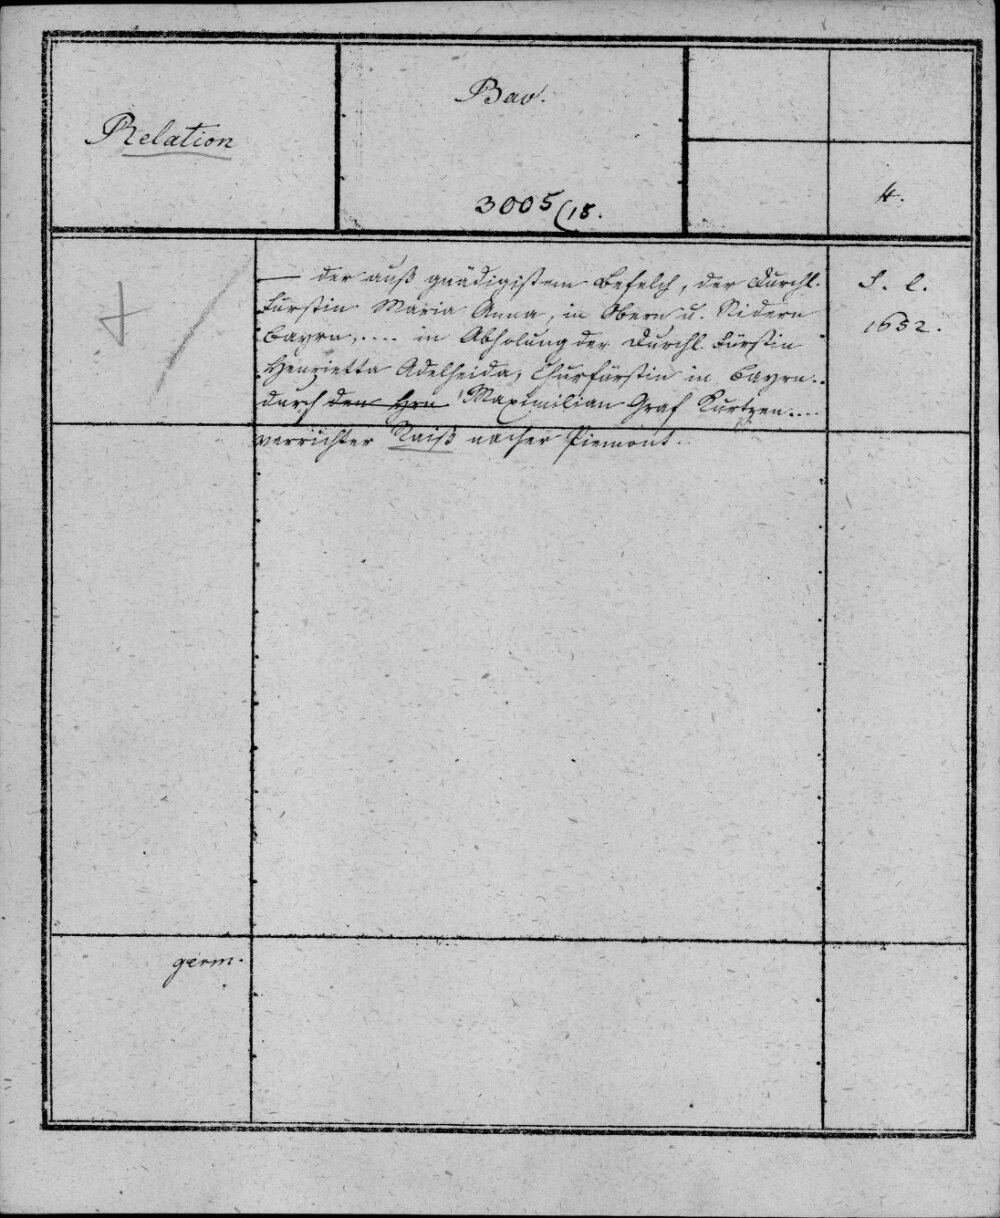 Relation
Bav.
3005/15.
4.
— der auß gnädigistem Befelch, der Durchl.
Fürstin Maria Anna, in Obern u. Nidern
Bayrn, .... in Abholung der Durchl. Fürstin
Henrietta Adelheida, Churfürstin in Bayrn..
durch den Hrn Maximilian Graf Kurtzen....
verrichter Raiß nacher Piemont.
S. l.
1652.
germ.